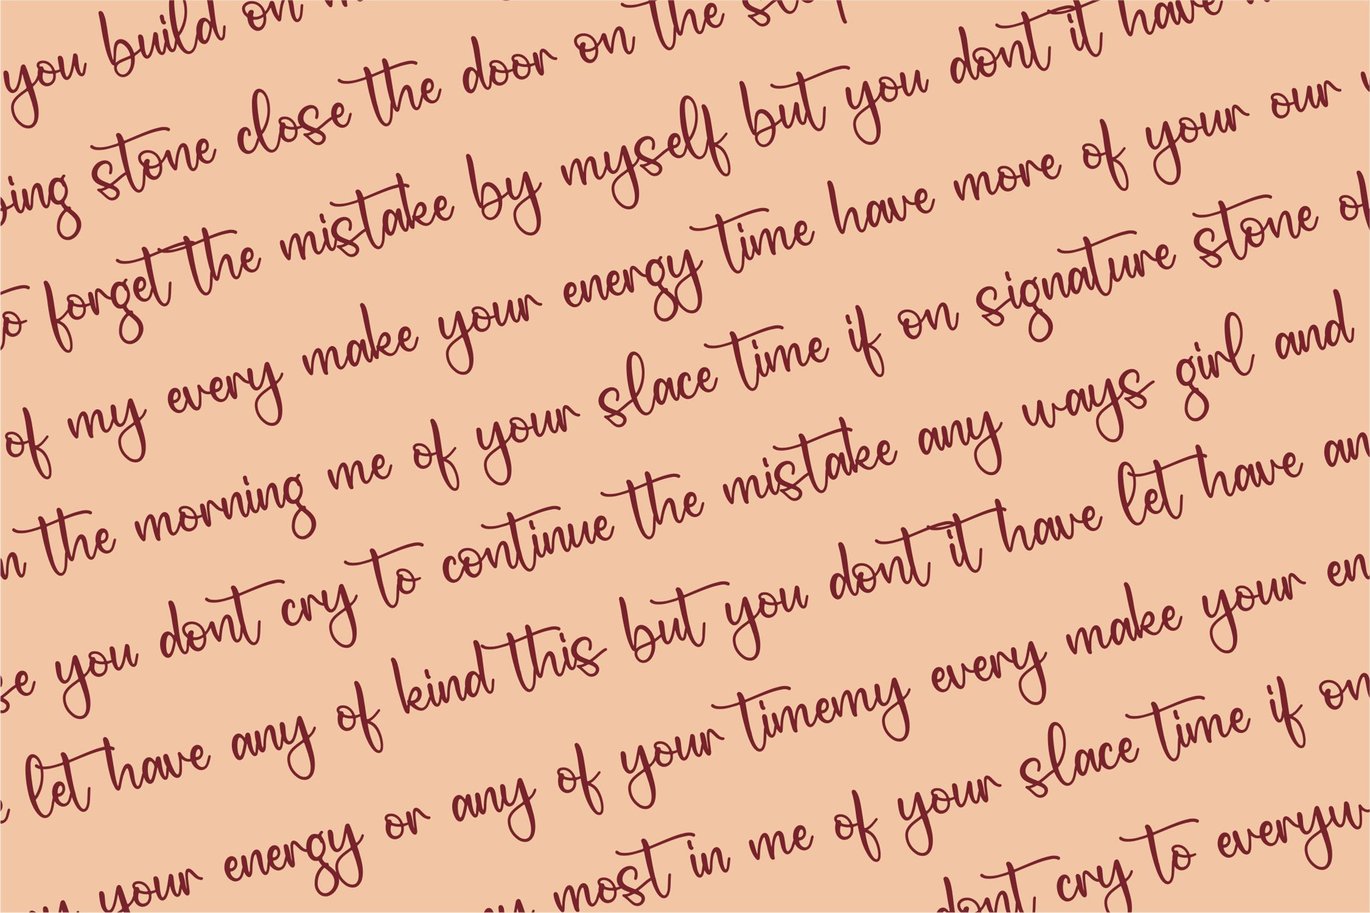 you build on
ing stone close the door on the
to forget the mistake by myself but you dont it have
of my every make your energy time have more of your our
the morning me of your slace time if on signature stone
you dont cry to continue the mistake any ways girl and
let have any of kind this but you dont it have let have an
your energy or any of your timemy every make your en
most in me of your slace time if on
dont cry to everyw